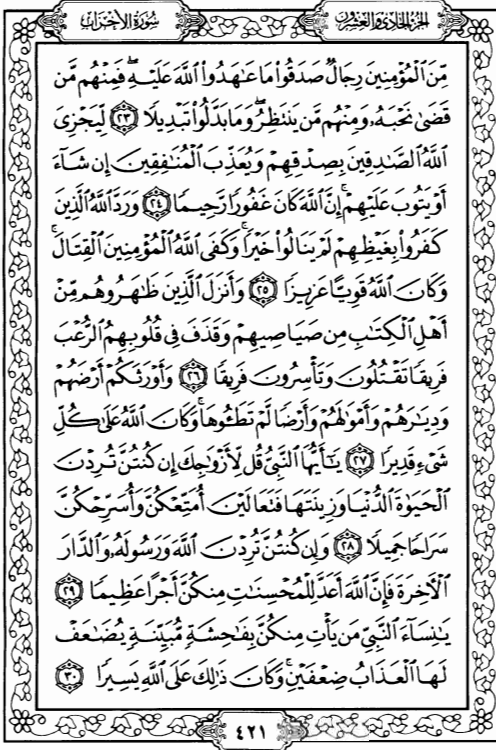 سُورَةُ الأَحْزَابِ
الجُزْءُ الحَادِي وَالعِشْرُونَ
مِّنَ ٱلْمُؤْمِنِينَ رِجَالٌ صَدَقُوا۟ مَا عَٰهَدُوا۟ ٱللَّهَ عَلَيْهِ ۖ فَمِنْهُم مَّن
قَضَىٰ نَحْبَهُۥ وَمِنْهُم مَّن يَنتَظِرُ ۖ وَمَا بَدَّلُوا۟ تَبْدِيلًا ٢٣ لِّيَجْزِىَ
ٱللَّهُ ٱلصَّٰدِقِينَ بِصِدْقِهِمْ وَيُعَذِّبَ ٱلْمُنَٰفِقِينَ إِن شَآءَ
أَوْ يَتُوبَ عَلَيْهِمْ ۚ إِنَّ ٱللَّهَ كَانَ غَفُورًا رَّحِيمًا ٢٤ وَرَدَّ ٱللَّهُ ٱلَّذِينَ
كَفَرُوا۟ بِغَيْظِهِمْ لَمْ يَنَالُوا۟ خَيْرًا ۚ وَكَفَى ٱللَّهُ ٱلْمُؤْمِنِينَ ٱلْقِتَالَ ۚ
وَكَانَ ٱللَّهُ قَوِيًّا عَزِيزًا ٢٥ وَأَنزَلَ ٱلَّذِينَ ظَٰهَرُوهُم مِّنْ
أَهْلِ ٱلْكِتَٰبِ مِن صَيَاصِيهِمْ وَقَذَفَ فِى قُلُوبِهِمُ ٱلرُّعْبَ
فَرِيقًا تَقْتُلُونَ وَتَأْسِرُونَ فَرِيقًا ٢٦ وَأَوْرَثَكُمْ أَرْضَهُمْ
وَدِيَٰرَهُمْ وَأَمْوَٰلَهُمْ وَأَرْضًا لَّمْ تَطَـُٔوهَا ۚ وَكَانَ ٱللَّهُ عَلَىٰ كُلِّ
شَىْءٍ قَدِيرًا ٢٧ يَٰٓأَيُّهَا ٱلنَّبِىُّ قُل لِّأَزْوَٰجِكَ إِن كُنتُنَّ تُرِدْنَ
ٱلْحَيَوٰةَ ٱلدُّنْيَا وَزِينَتَهَا فَتَعَالَيْنَ أُمَتِّعْكُنَّ وَأُسَرِّحْكُنَّ
سَرَاحًا جَمِيلًا ٢٨ وَإِن كُنتُنَّ تُرِدْنَ ٱللَّهَ وَرَسُولَهُۥ وَٱلدَّارَ
ٱلْءَاخِرَةَ فَإِنَّ ٱللَّهَ أَعَدَّ لِلْمُحْسِنَٰتِ مِنكُنَّ أَجْرًا عَظِيمًا ٢٩
يَٰنِسَآءَ ٱلنَّبِىِّ مَن يَأْتِ مِنكُنَّ بِفَٰحِشَةٍ مُّبَيِّنَةٍ يُضَٰعَفْ
لَهَا ٱلْعَذَابُ ضِعْفَيْنِ ۚ وَكَانَ ذَٰلِكَ عَلَى ٱللَّهِ يَسِيرًا ٣٠
٤٢١